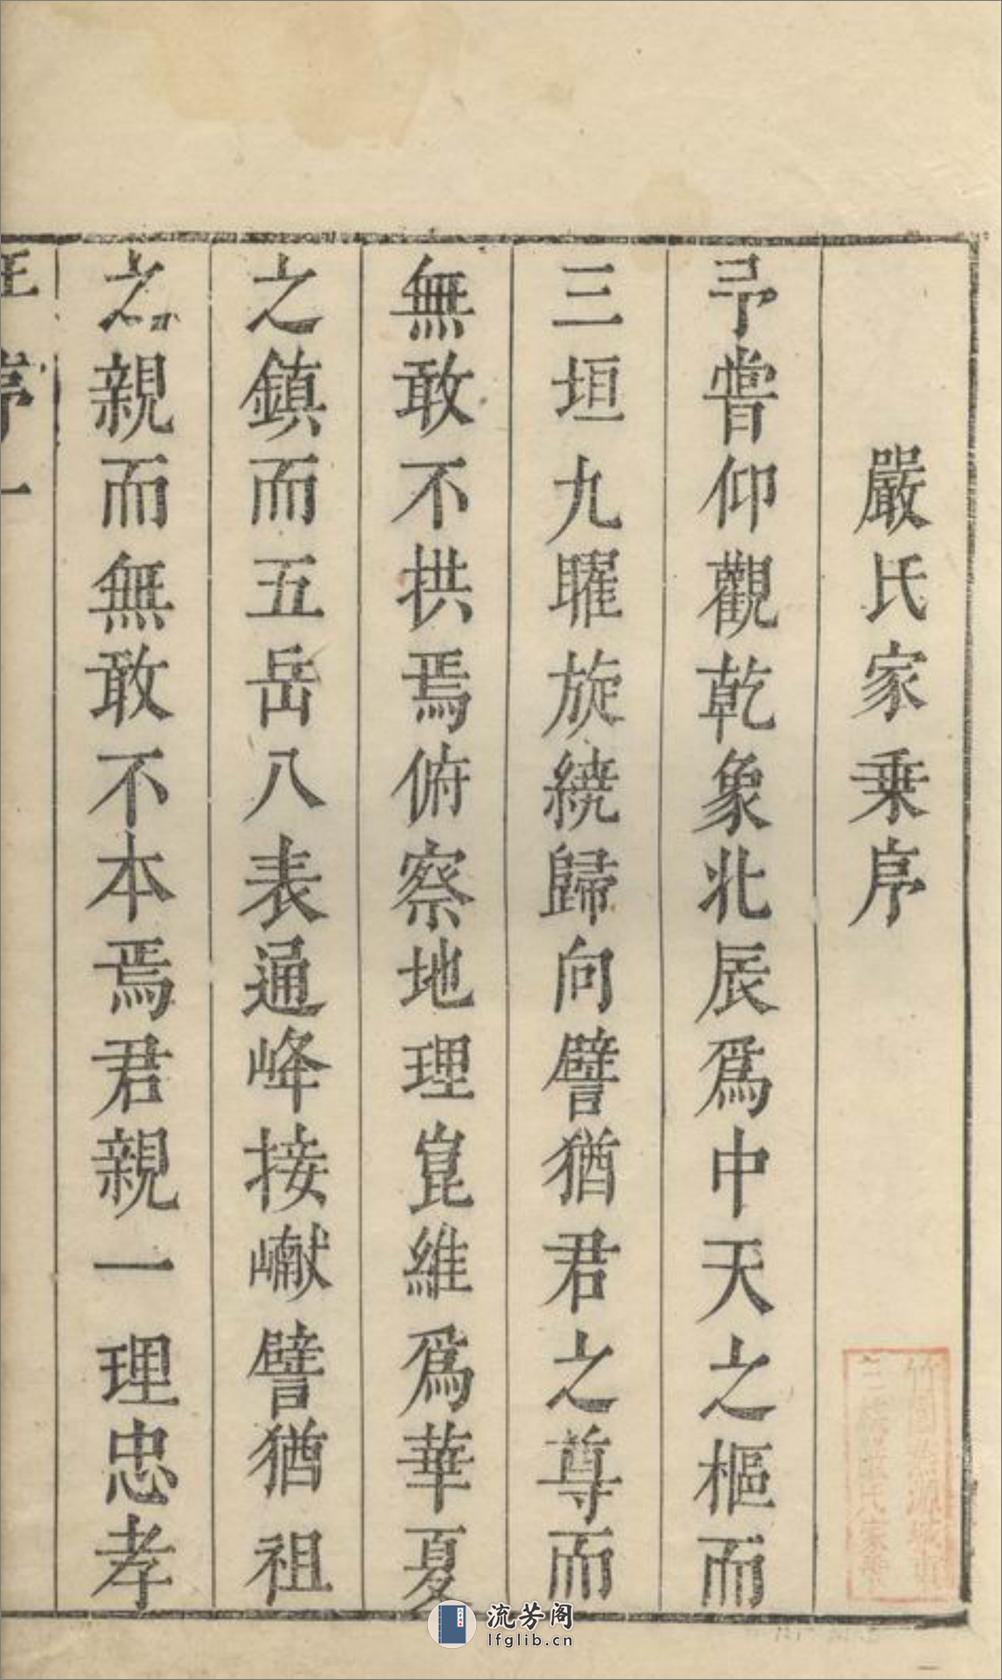 嚴氏家乗序
予嘗仰觀乾象北辰爲中天之樞而
三垣九曜旋繞歸向譬猶君之尊而
無敢不拱焉俯察地理崑維爲華夏
之鎮而五岳八表通峰接巘譬猶祖
之親而無敢不本焉君親一理忠孝
序一
流芳阁
lfglib.cn